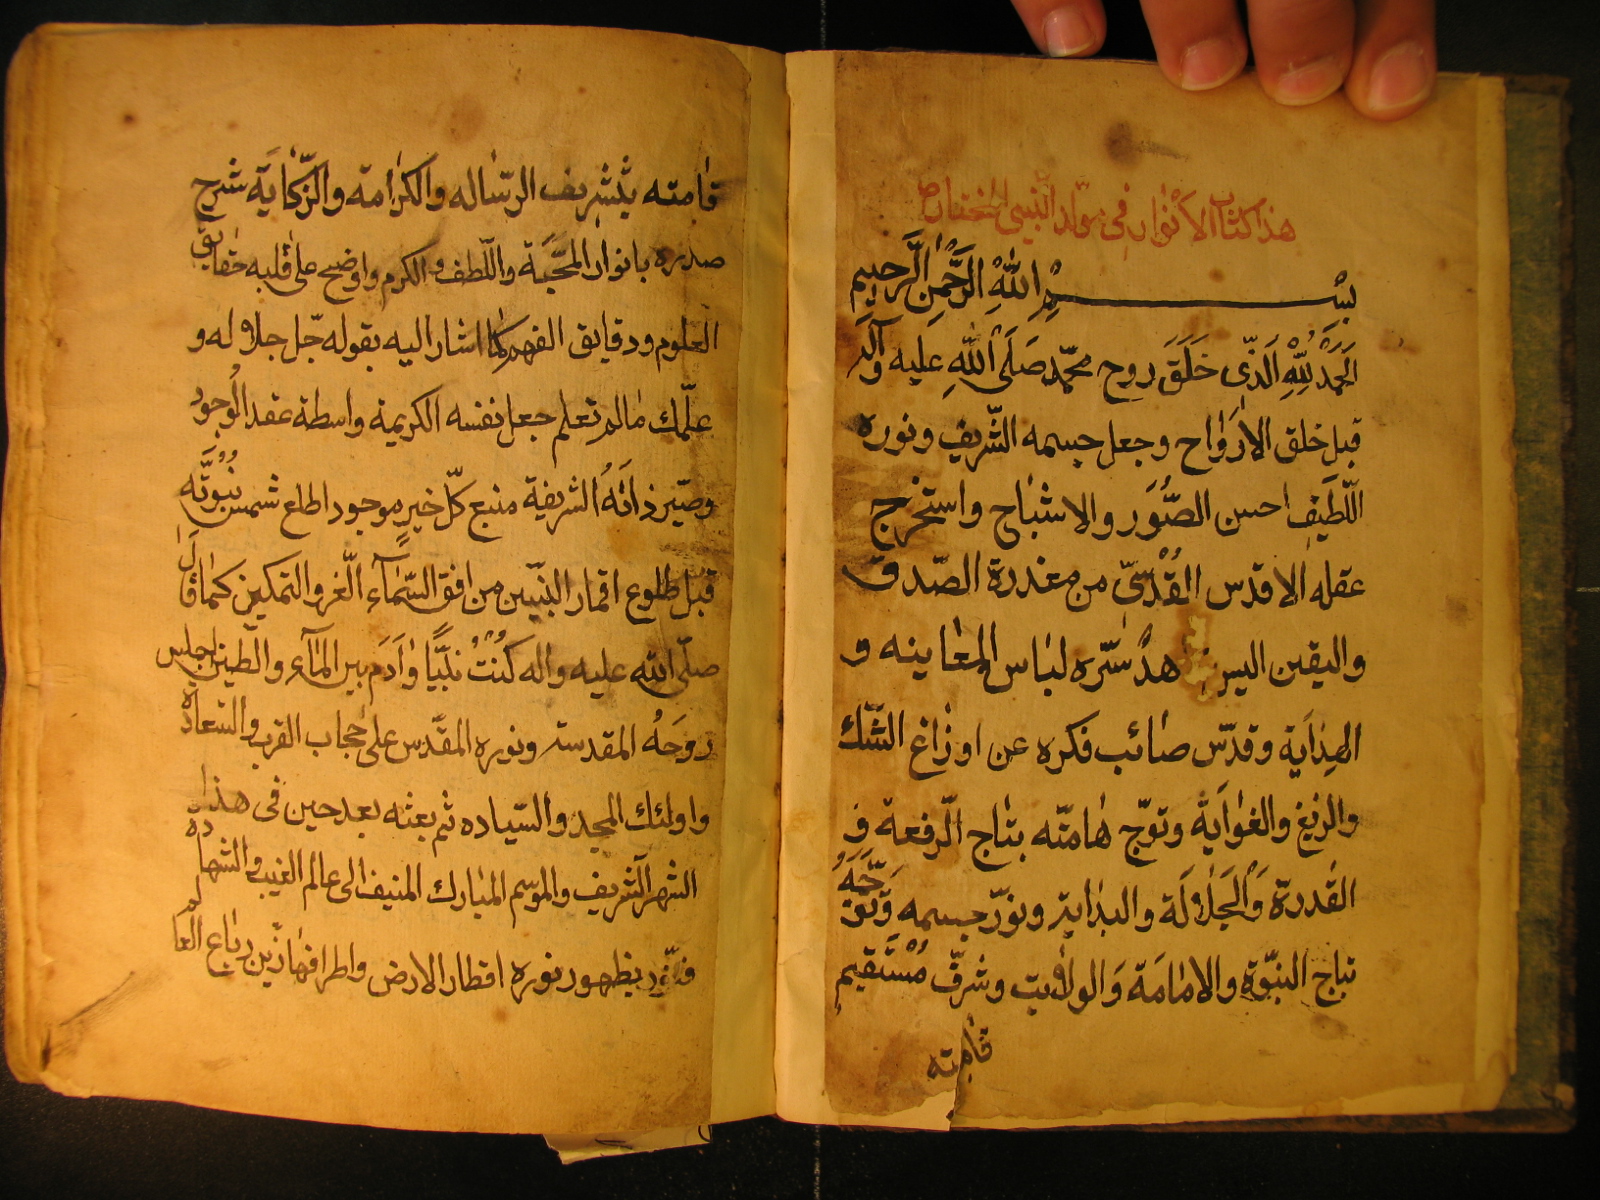 هذا كتاب الأنوار في مولد النبي المختار ص
بسم الله الرحمن الرحيم
الحمد لله الذي خلق روح محمد صلى الله عليه وآله
قبل خلق الارواح وجعل جسمه الشريف ونوره
اللطيف احسن الصور والاشباح واستخرج
عقله الاقدس القدسي من معندرة الصدق
واليقين سره لباس المعاينه و
الهداية وقدس صائب فكره عن اوزاغ الشك
والزيغ والغواية وتوج هامته بتاج الرفعة و
القدرة والجلالة والبداية ونور جسمه وتوجه
بتاج النبوة والامامة والولايت وشرف مستقيم
قامته
قامته بتشريف الرساله والكرامه والزكاية شرح
صدره بانوار المحبة واللطف والكرم واوضح على قلبه حقايق
العلوم ودقايق الفهم كما اشار اليه بقوله جل جلاله و
علمك مالم تعلم جعل نفسه الكريمة واسطة عقد الوجود
وصير ذاته الشريفة منبع كل خير موجود اطلع شمس نبوته
قبل طلوع اقمار النبيين من افق السماء العز والتمكين كما قال
صلى الله عليه واله كنت نبيا وآدم بين الماء والطين اجلس
روحه المقدسة ونوره المقدس على حجاب القرب والسعادة
واولئك المجد والسياده ثم بعثه بعد حين في هذا
الشهر الشريف والموسم المبارك المنيف الى عالم الغيب والشهادة
فنور بظهور نوره اقطار الارض واطرافها زين رباع العالم